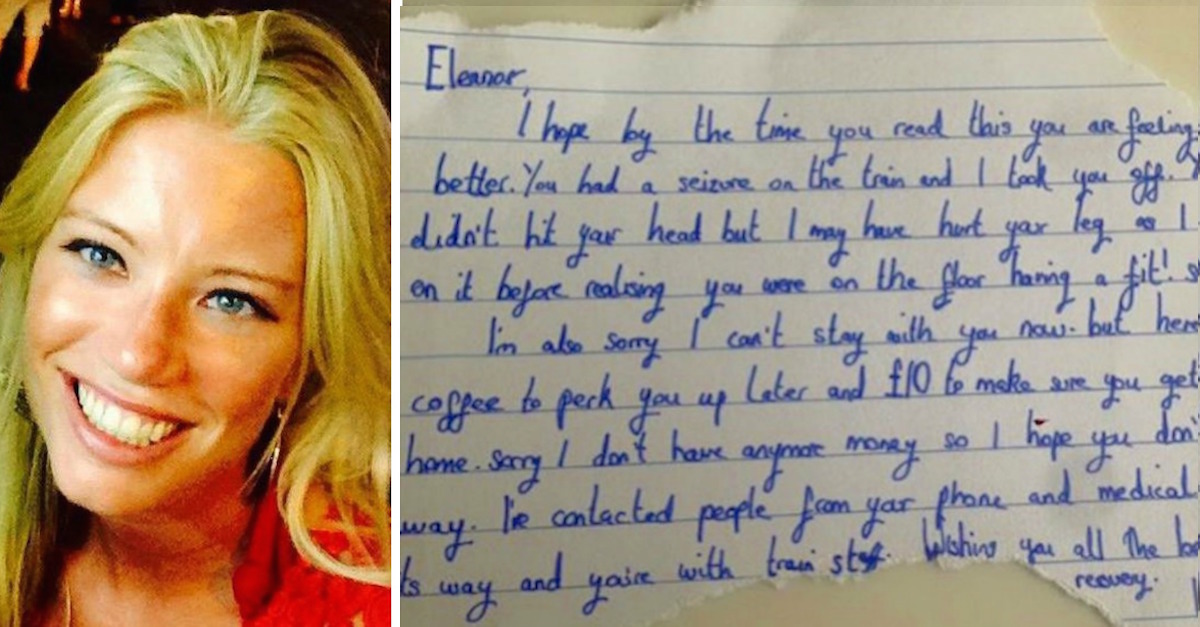 Eleanor,
I hope by the time you read this you are feeling
better. You had a seizure on the train and I took you off.
didn't hit your head but I may have hurt your leg as I
on it before realising you were on the floor having a fit! s
I'm also sorry I can't stay with you now. but here
coffee to perk you up later and £10 to make sure you get
home. Sorry I don't have anymore money so I hope you don't
way. I've contacted people from your phone and medical
ts way and you're with train staff. Wishing you all the be
recovery.